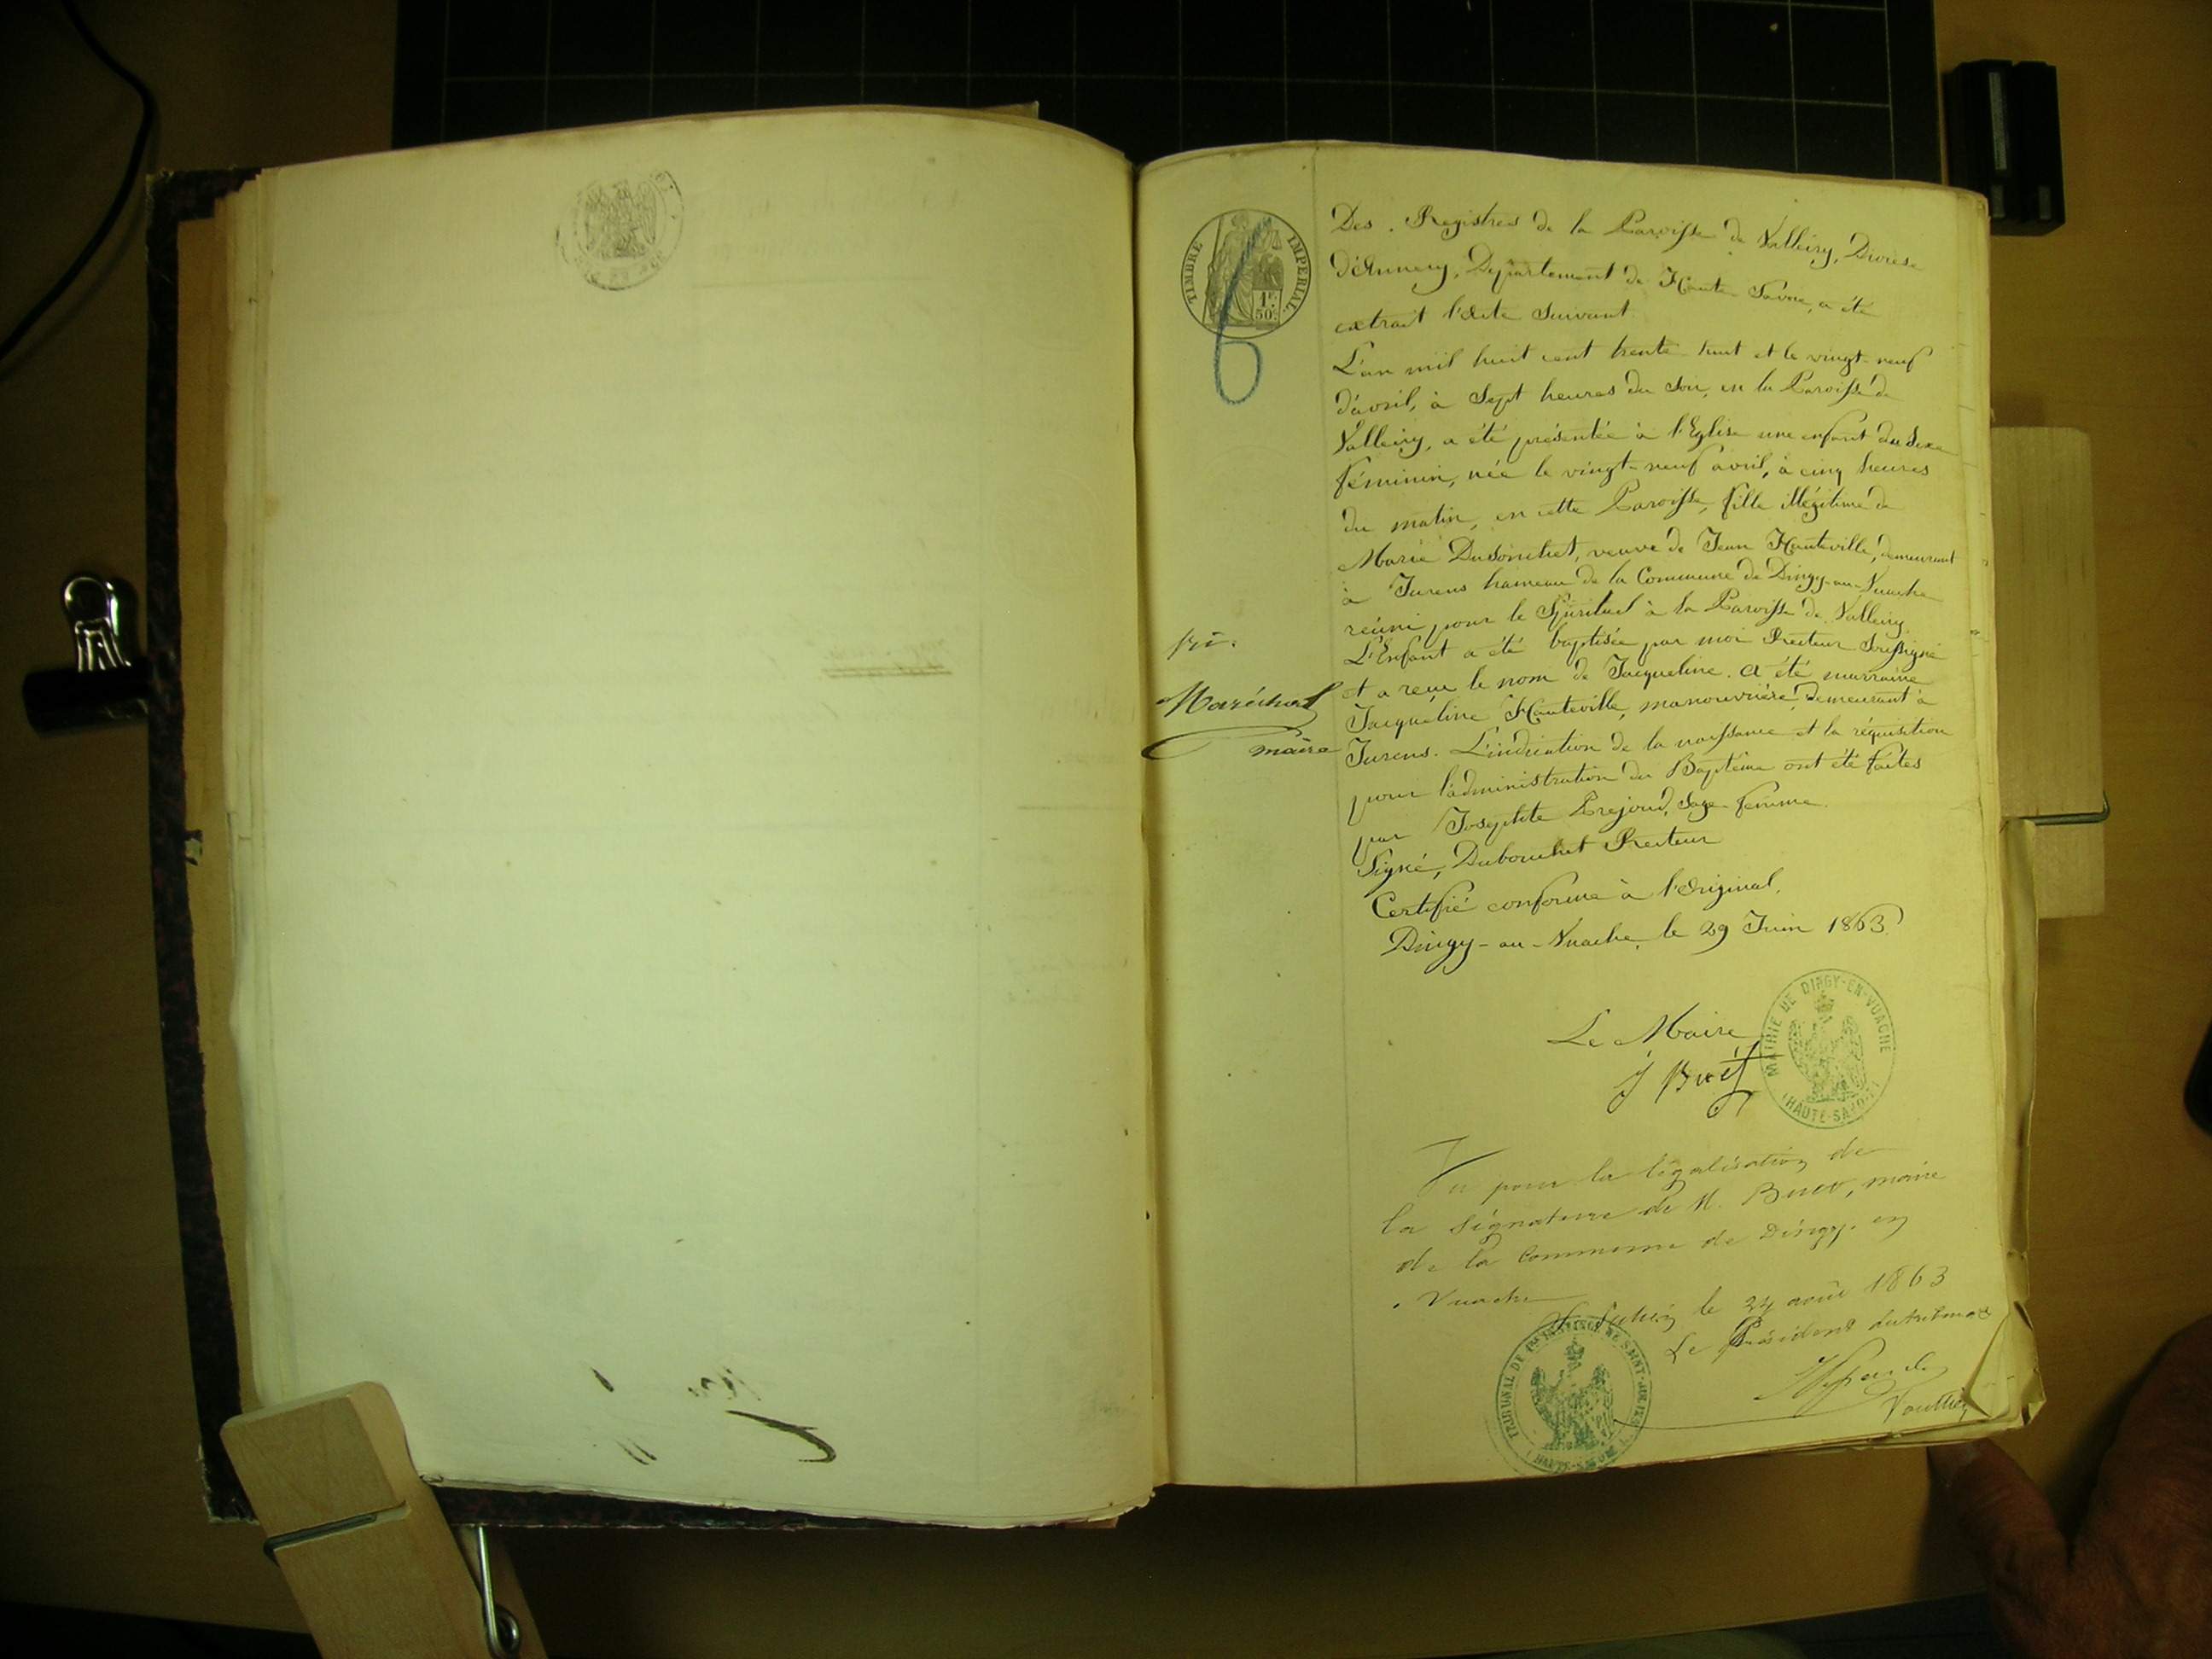 TIMBRE IMPERIAL
1F
50C
6
Des Registres de la Paroisse de Valleiry, Diocèse
d'Annecy, Département de Haute Savoie, a été
extrait l'Acte Suivant.
L'an mil huit cent trente huit et le vingt-neuf
d'avril, à Sept heures du Soir, en la Paroisse de
Valleiry, a été présentée à l'Eglise une enfant du Sexe
féminin, née le vingt-neuf avril, à cinq heures
du matin, en cette Paroisse, fille illégitime de
Marie, veuve de Jean Hauteville, demeurant
à Jurens hameau de la Commune de Dingy-au-Vuache
réuni pour le Spirituel à la Paroisse de Valleiry.
L'Enfant a été baptisée par moi Recteur Soussigné
et a reçu le nom de Jacqueline. A été marraine
Jacqueline Hauteville, manouvrière, demeurant à
Jurens. L'indication de la naissance et la réquisition
pour l'administration du Baptême ont été faites
par Josephte Prejoud, Sage-femme.
Signé, Dubouchet Recteur
Certifié conforme à l'Original.
Dingy-au-Vuache, le 29 Juin 1863.
Maréchal
maire
Le Maire
J Buét
MAIRIE DE DINGY-EN-VUACHE
(HAUTE-SAVOIE)
Vu pour la légalisation de
la signature de M. Buet, maire
de la Commune de Dingy-en
Vuache
St Julien le 24 août 1863
Le Président du tribunal
TRIBUNAL DE 1RE INSTANCE DE SAINT-JULIEN
(HAUTE-SAVOIE)